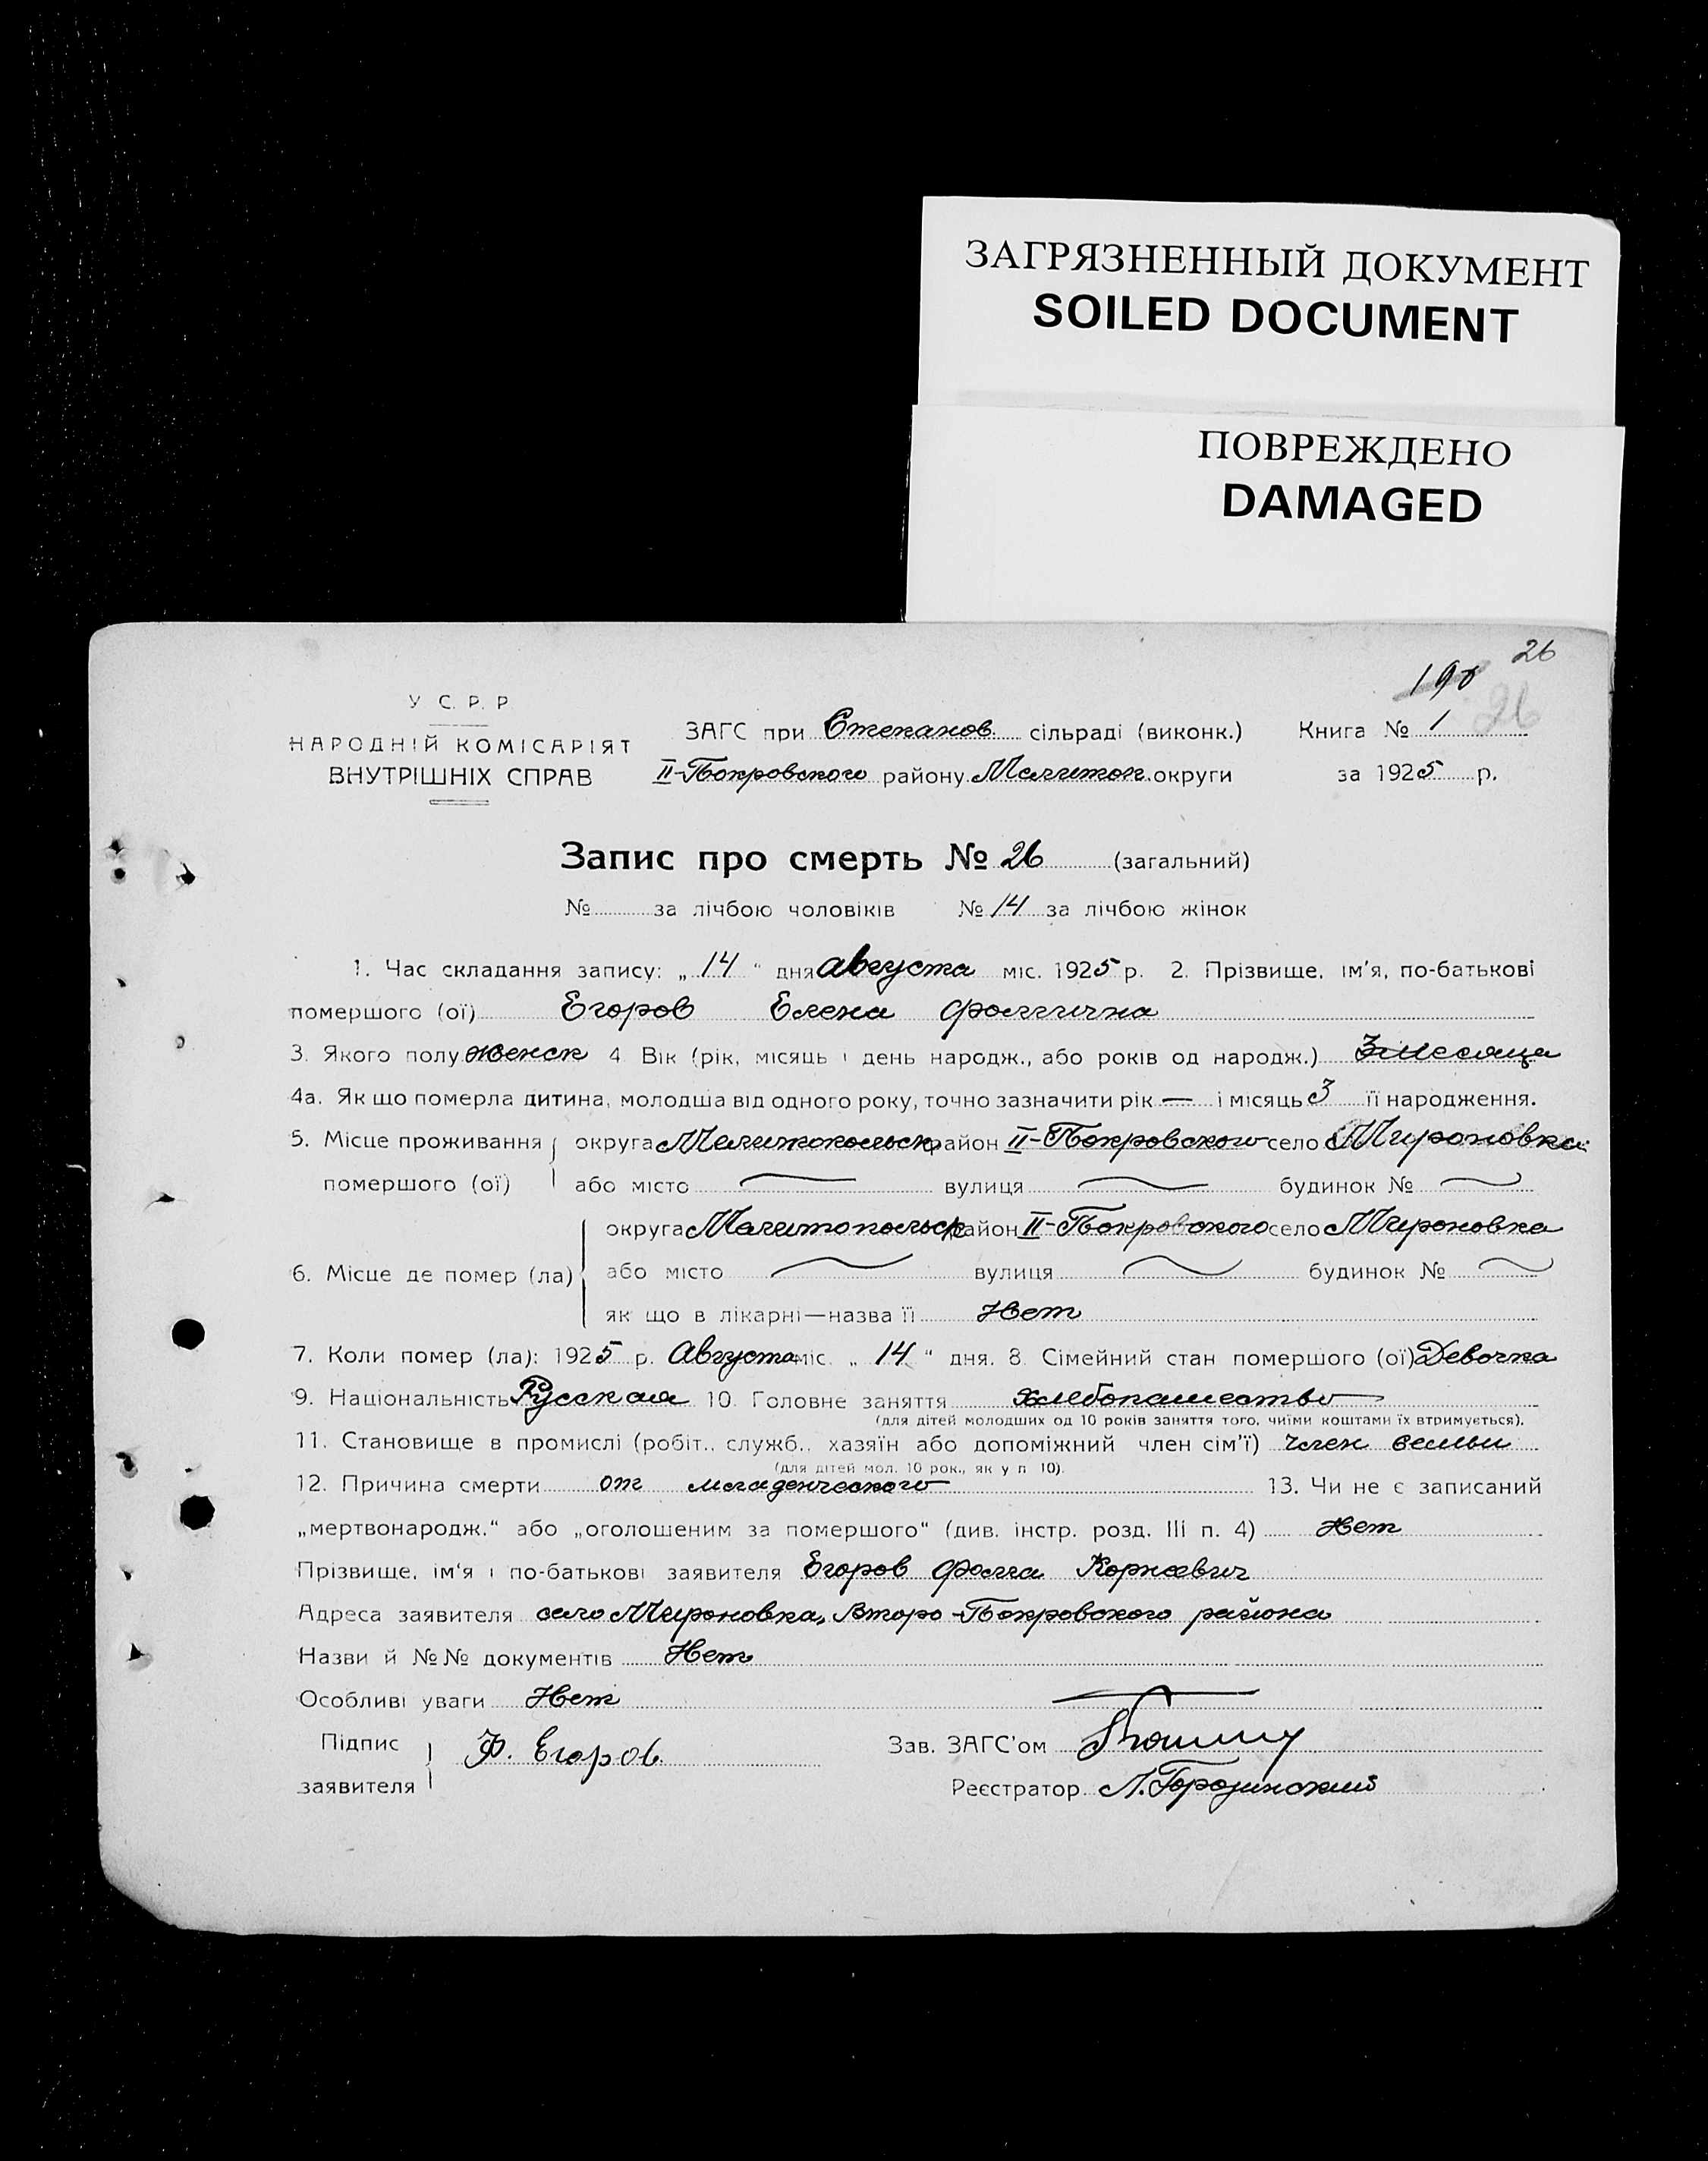 ЗАГРЯЗНЕННЫЙ ДОКУМЕНТ
SOILED DOCUMENT
ПОВРЕЖДЕНО
DAMAGED
26
198
26
У С. Р. Р
НАРОДНІЙ КОМІСАРІЯТ
ВНУТРІШНІХ СПРАВ
ЗАГС при Степанов. сільраді (виконк.) Книга № 1
II-Покровского району Мелитоп. округи за 1925 р.
Запис про смерть № 26 (загальний)
№ за лічбою чоловіків № 14 за лічбою жінок
1. Час складання запису: „ 14 " дня Августа міс. 1925 р. 2. Прізвище, ім'я, по-батькові
помершого (ої) Егоров Елена Фомична
3. Якого полу женск 4 Вік (рік, місяць і день народж., або років од народж.) 3 месяца
4а. Як що померла дитина, молодша від одного року, точно зазначити рік — і місяць 3 її народження.
5. Місце проживання округа Мелитопольск район II-Покровского село Мироновка
помершого (ої) або місто вулиця будинок №
округа Мелитопольск район II-Покровского село Мироновка
6. Місце де помер (ла) або місто вулиця будинок №
як що в лікарні—назва її Нет
7. Коли помер (ла): 1925 р. Августа міс. „ 14 " дня. 8. Сімейний стан помершого (ої) Девочка
9. Національність Русская 10. Головне заняття хлебопашество
(для дітей молодших од 10 років заняття того, чиїми коштами їх втримується).
11. Становище в промислі (робіт., служб., хазяїн або допоміжний член сім'ї) член семьи
(для дітей мол. 10 рок., як у п 10).
12. Причина смерти от младенческого 13. Чи не є записаний
„мертвонародж." або „оголошеним за помершого" (див. інстр. розд. III п. 4) Нет
Прізвище, ім'я і по-батькові заявителя Егоров Фома Корнеевич
Адреса заявителя село Мироновка, Второ-Покровского района
Назви й №№ документів Нет
Особливі уваги Нет
Підпис
заявителя Ф. Егоров.
Зав. ЗАГС'ом
Реєстратор Л.